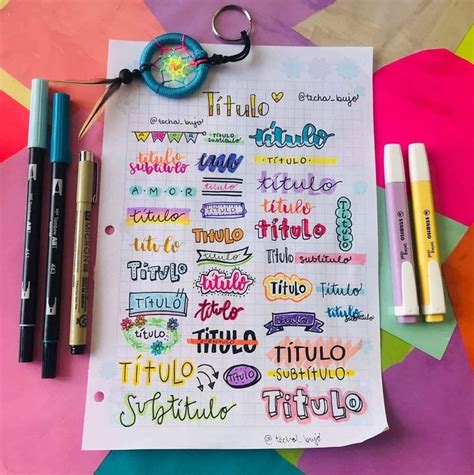 Título
@techa_bujo
@techa_bujo
TÍTULO
subtítulo
título
título
subtítulo
título
·TÍTULO·
AMOR
TÍTULO
título
título
título
título
título
TÍTULO
TÍTULO
TÍTULO
título
TÍTULO
subtítulo
TÍTULO
título
TÍTULO
título
TÍTULO
título
título
título
subtítulo
título
TÍTULO
TÍTULO
SUBTÍTULO
TÍTULO
título
Subtítulo
TÍTULO
@techa_bujo
MICRON
STABILO
STABILO